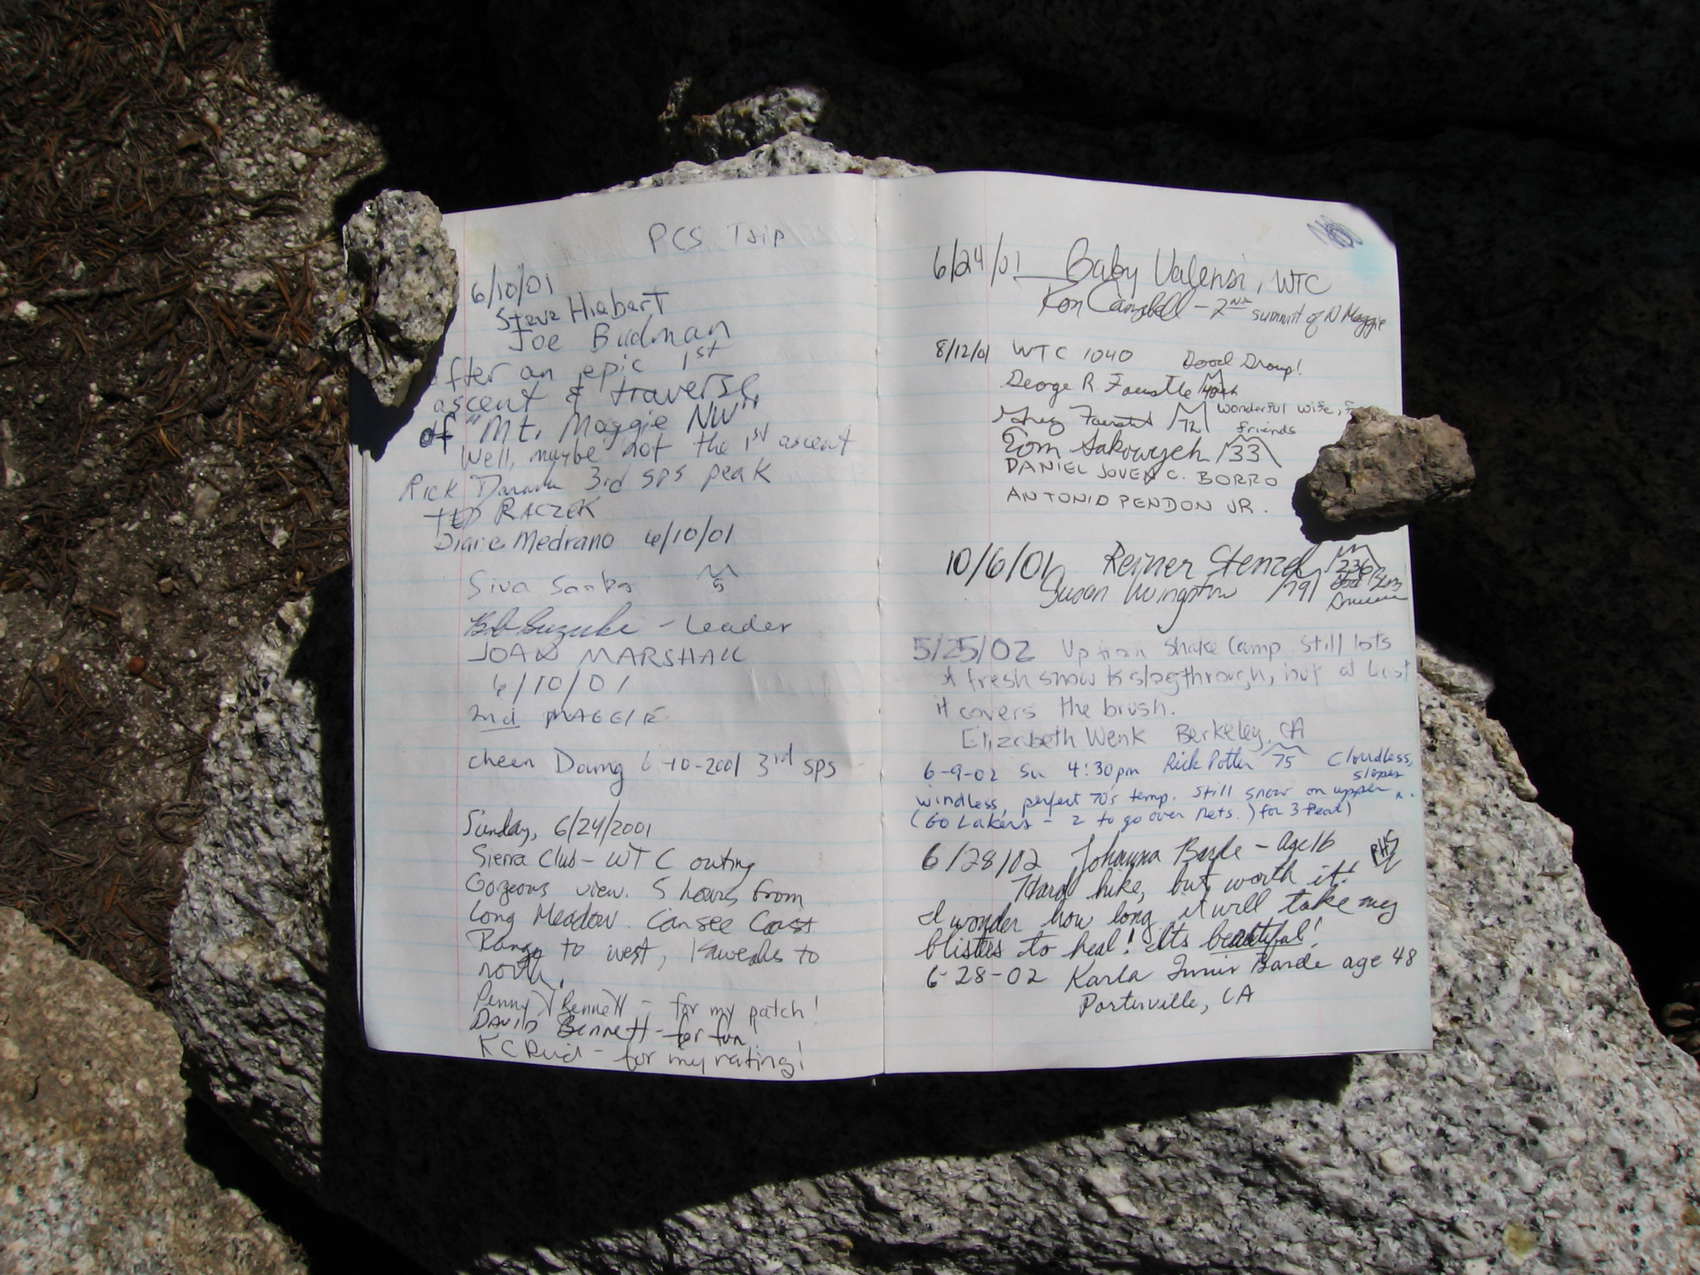 PCS Trip
6/10/01
Steve Hiebert
Joe Budman
after an epic 1st
ascent & traverse
of "Mt. Maggie NW"
Well, maybe not the 1st ascent
Rick 3rd SPS peak
TED RACZEK
Diane Medrano 6/10/01
Siva 5
Bob Suzuki - Leader
JOAN MARSHALL
6/10/01
2nd MAGGIE
cheen 6-10-2001 3rd SPS
Sunday, 6/24/2001
Sierra Club - WTC outing
Gorgeous view. 5 hours from
Long Meadow. Can see Coast
Range to west, Kaweahs to
north.
Penny Bennett - for my patch!
DAVID BENNETT - for fun
KC Reid - for my rating!
6/24/01 Gaby Valensi, WTC
Ron Campbell - 2nd summit of N Maggie
8/12/01 WTC 1040 Good Group!
George R
Greg 72 Wonderful Wife,
friends
Tom Sakowych 33
DANIEL JOVEN C. BORRO
ANTONIO PENDON JR.
10/6/01 Reiner Stenzel 236
Susan Livingston 79
5/25/02 Up from Shake Camp. Still lots
of fresh snow to slog through, but at least
it covers the brush.
Elizabeth Wenk Berkeley, CA
6-9-02 Su 4:30pm Rick Potter 75 Cloudless,
slopes
windless, perfect 70's temp. Still snow on upper
(Go Lakers - 2 to go over Nets.) for 3 Peat)
6/28/02 Johanna Barde - age 16 PHS
Hard hike, but worth it!
I wonder how long it will take my
blisters to heal! Its beautiful!
6-28-02 Karla Barde age 48
Porterville, CA